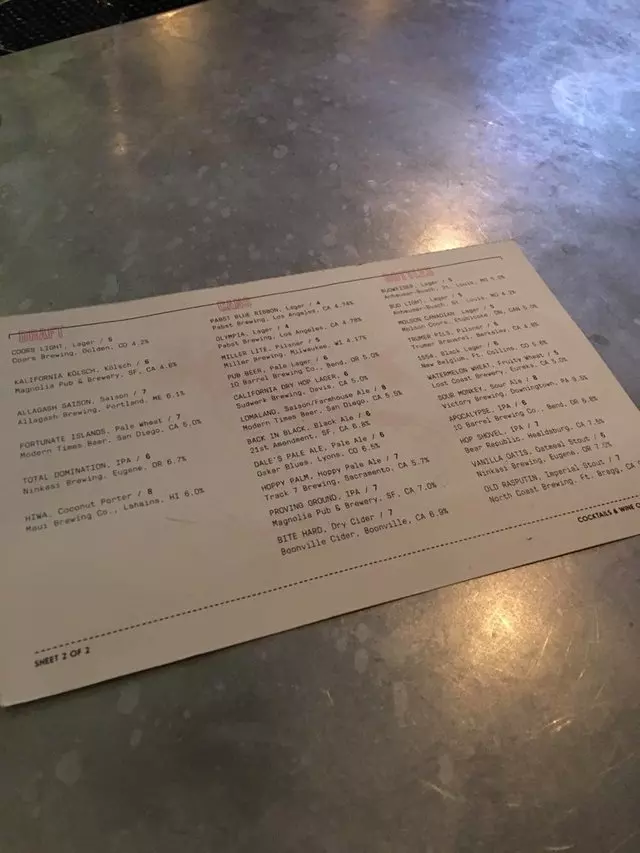 DRAFT
COORS LIGHT, Lager / 5
Coors Brewing, Golden, CO 4.2%
KALIFORNIA KÖLSCH, Kölsch / 6
Magnolia Pub & Brewery, SF, CA 4.8%
ALLAGASH SAISON, Saison / 7
Allagash Brewing, Portland, ME 6.1%
FORTUNATE ISLANDS, Pale Wheat / 7
Modern Times Beer, San Diego, CA 5.0%
TOTAL DOMINATION, IPA / 6
Ninkasi Brewing, Eugene, OR 6.7%
HIWA, Coconut Porter / 8
Maui Brewing Co., Lahaina, HI 6.0%
CANS
PABST BLUE RIBBON, Lager / 4
Pabst Brewing, Los Angeles, CA 4.74%
OLYMPIA, Lager / 4
Pabst Brewing, Los Angeles, CA 4.78%
MILLER LITE, Pilsner / 5
Miller Brewing, Milwaukee, WI 4.17%
PUB BEER, Pale Lager / 6
10 Barrel Brewing Co., Bend, OR 5.0%
CALIFORNIA DRY HOP LAGER, 6
Sudwerk Brewing, Davis, CA 5.0%
LOMALAND, Saison/Farmhouse Ale / 9
Modern Times Beer, San Diego, CA 5.5%
BACK IN BLACK, Black Ale / 6
21st Amendment, SF, CA 6.8%
DALE'S PALE ALE, Pale Ale / 6
Oskar Blues, Lyons, CO 6.5%
HOPPY PALM, Hoppy Pale Ale / 7
Track 7 Brewing, Sacramento, CA 5.7%
PROVING GROUND, IPA / 7
Magnolia Pub & Brewery, SF, CA 7.0%
BITE HARD, Dry Cider / 7
Boonville Cider, Boonville, CA 6.9%
BOTTLES
BUDWEISER, Lager / 5
Anheuser-Busch, St. Louis, MO 5.0%
BUD LIGHT, Lager / 5
Anheuser-Busch, St. Louis, MO 4.2%
MOLSON CANADIAN, Lager / 5
Molson Coors, ON, CAN 5.0%
TRUMER PILS, Pilsner / 6
Trumer Brauerei, Berkeley, CA 4.8%
1554, Black Lager / 6
New Belgium, Ft. Collins, CO 5.6%
WATERMELON WHEAT, Fruity Wheat / 6
Lost Coast Brewery, Eureka, CA 5.0%
SOUR MONKEY, Sour Ale / 8
Victory Brewing, Downingtown, PA
APOCALYPSE, IPA / 6
10 Barrel Brewing Co., Bend, OR 6.8%
HOP SHOVEL, IPA / 7
Bear Republic, Healdsburg, CA 7.5%
VANILLA OATIS, Oatmeal Stout / 6
Ninkasi Brewing, Eugene, OR 7.0%
OLD RASPUTIN, Imperial Stout / 7
North Coast Brewing, Ft. Bragg, CA
SHEET 2 OF 2
COCKTAILS & WINE